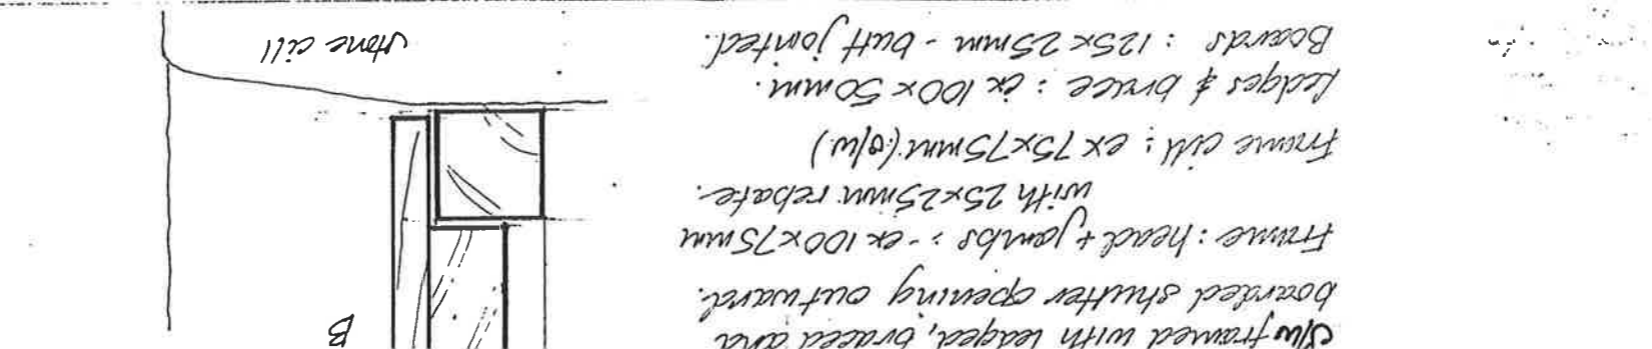 B
S/W framed with ledged, braced and
boarded shutter opening outward.
Frame: head + jambs :- ex 100x75mm
with 25x25mm rebate.
Frame cill: ex 75x75mm (o/w)
Ledges & brace: ex 100x50mm.
Boards: 125x25mm - butt jointed.
Stone cill